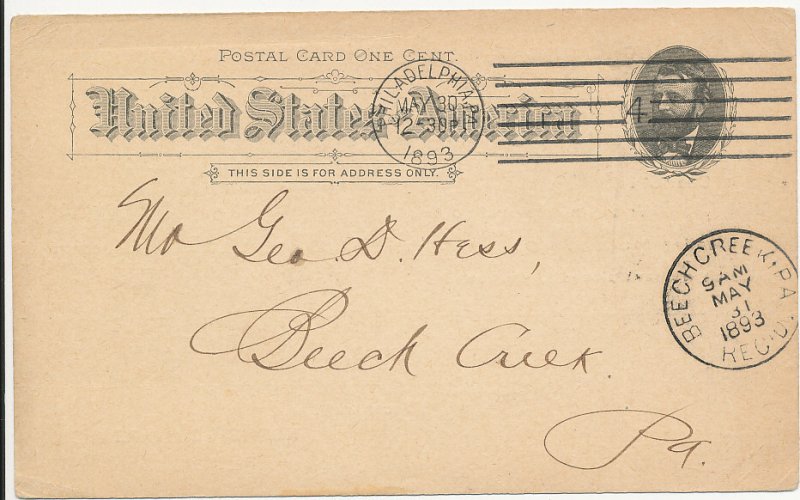 POSTAL CARD ONE CENT.
United States America
PHILADELPHIA, PA.
MAY 30
12-30P
1893
4
THIS SIDE IS FOR ADDRESS ONLY.
Mr Geo. D. Hess,
Beech Creek.
Pa.
BEECH CREEK, PA.
9 AM
MAY
31
1893
REC'D.